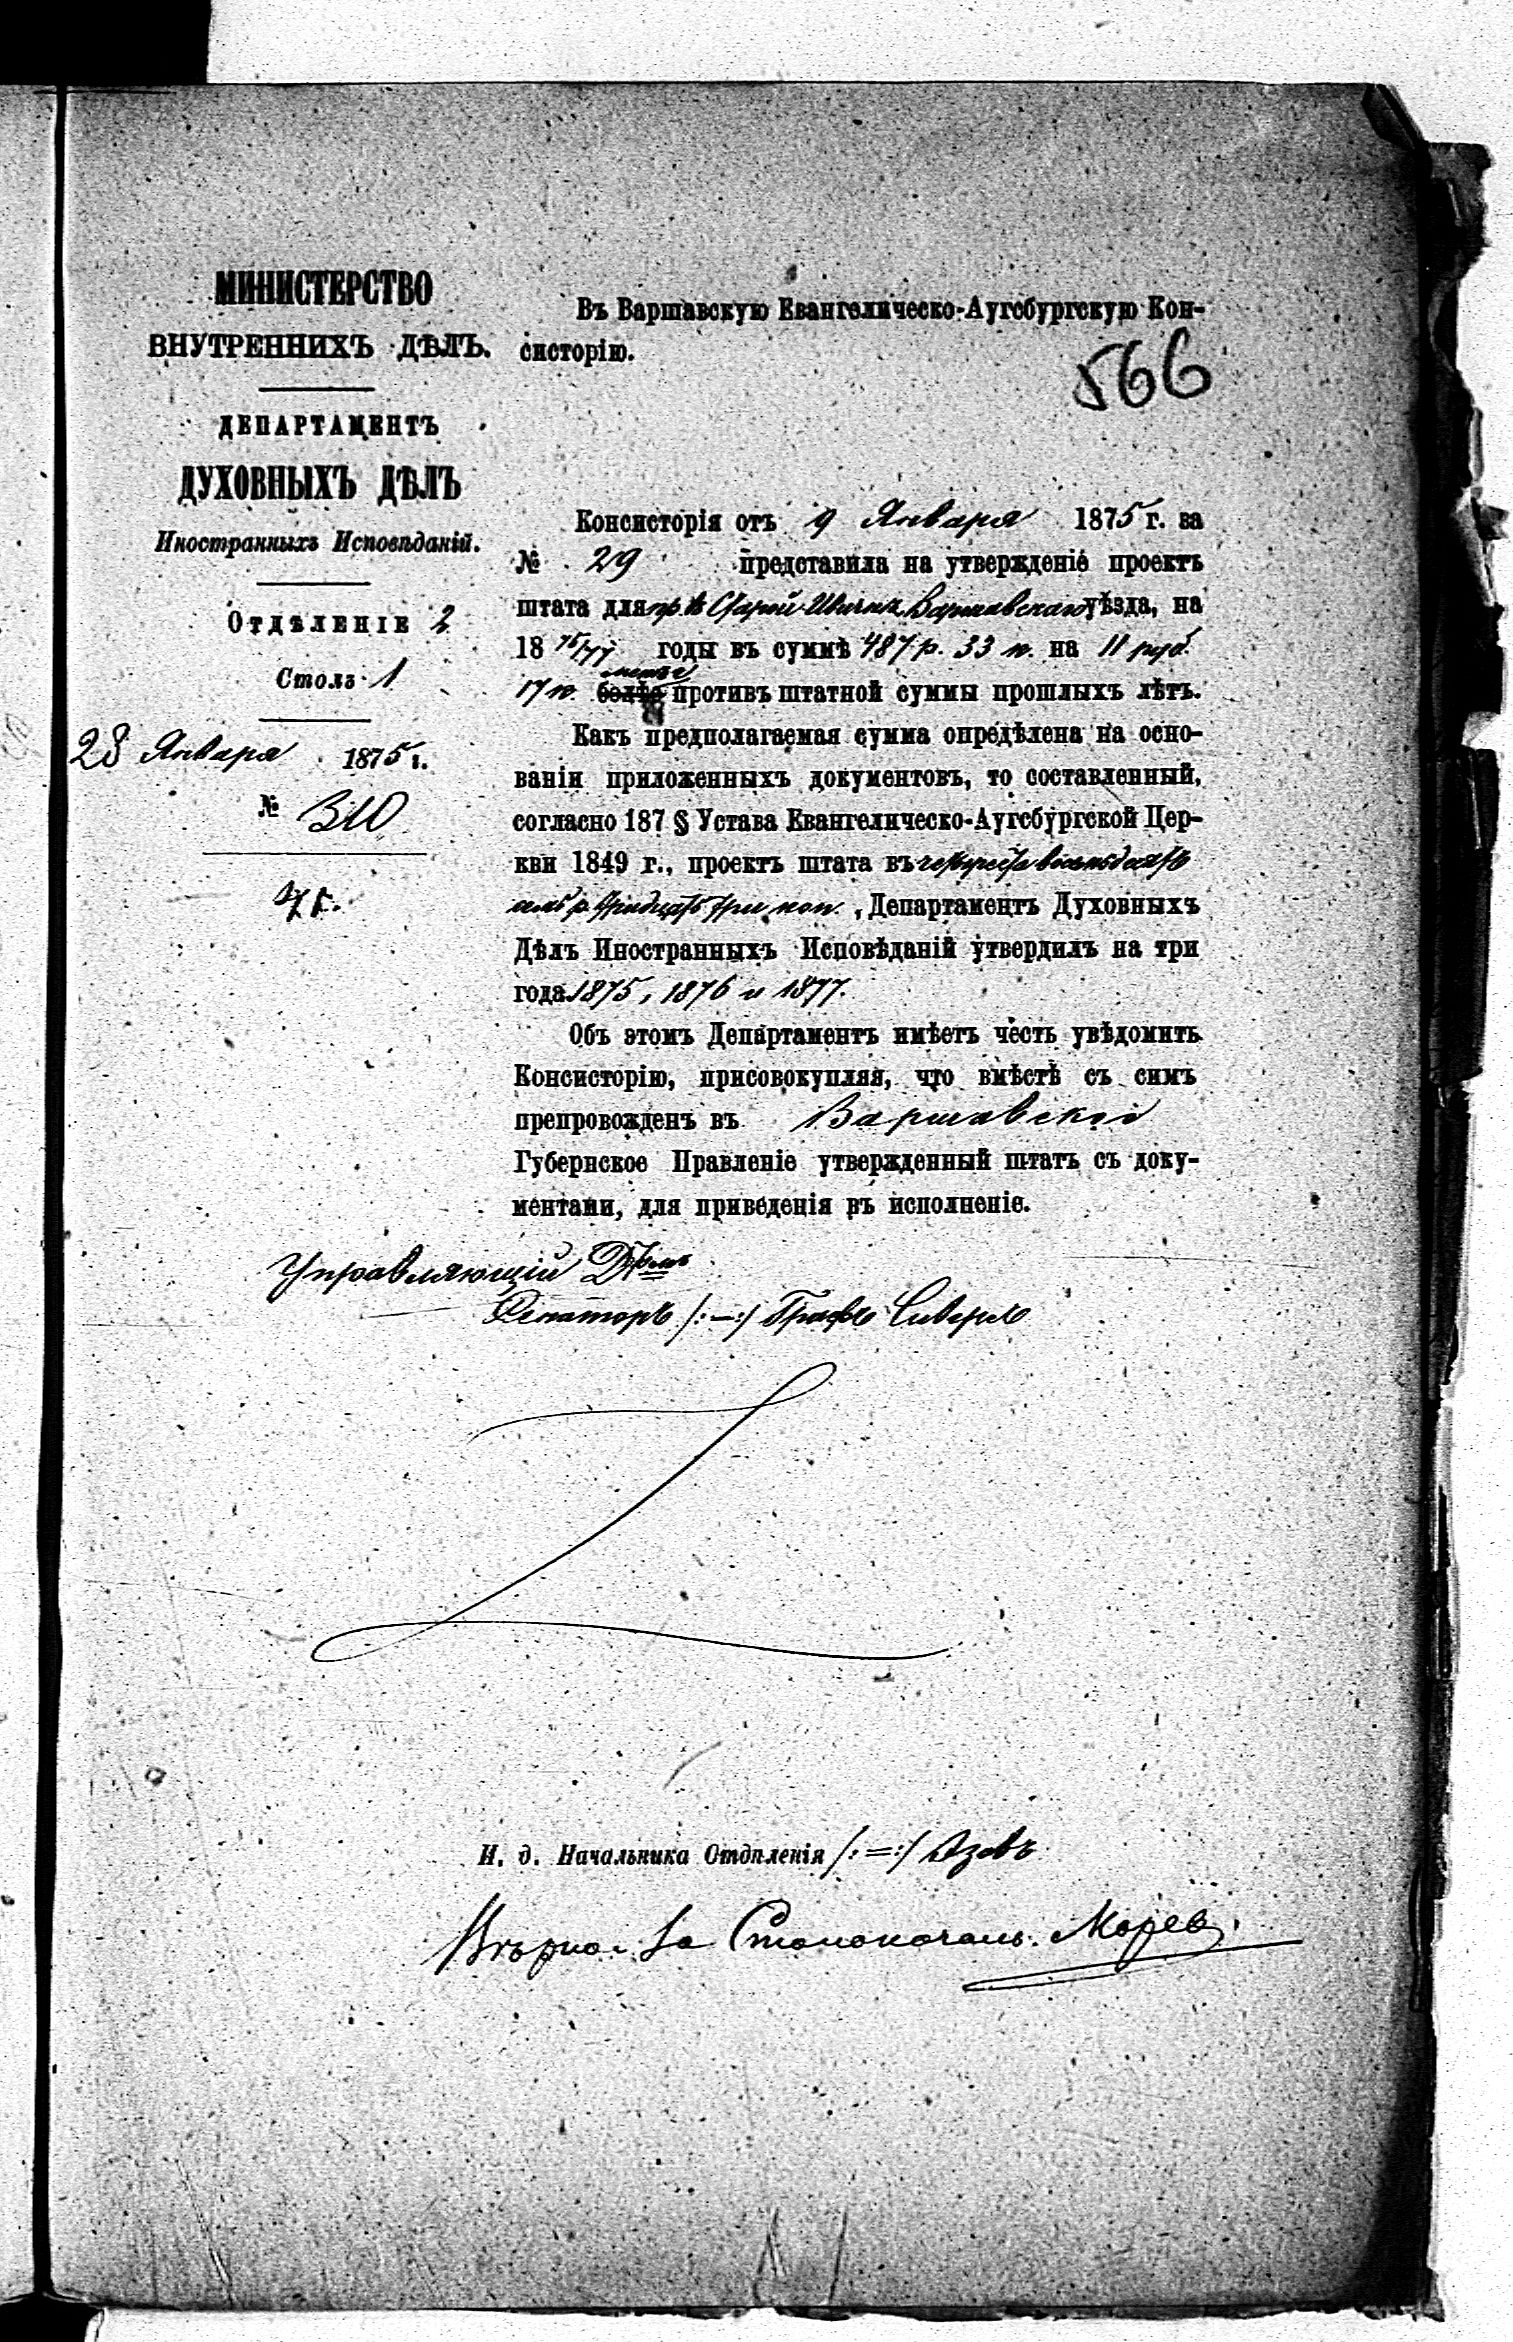 МИНИСТЕРСТВО
ВНУТРЕННИХЪ ДѢЛЪ.
ДЕПАРТАМЕНТЪ
ДУХОВНЫХЪ ДѢЛЪ
Иностранныхъ Исповѣданій.
ОТДѢЛЕНІЕ 2
Столъ 1
28 Января 1875 г.
№ 310
Въ Варшавскую Евангелическо-Аугсбургскую Кон-
систорію.
566
Консисторія отъ 9 Января 1875 г. за
№ 29 представила на утвержденіе проектъ
штата для пр. въ Старой Ивичнѣ Варшавскаго уѣзда, на
18 75/77 годы въ суммѣ 487 р. 33 к. на 11 руб.
менѣе
17 к. болѣе противъ штатной суммы прошлыхъ лѣтъ.
Какъ предполагаемая сумма опредѣлена на осно-
ваніи приложенныхъ документовъ, то составленный,
согласно 187 § Устава Евангелическо-Аугсбургской Цер-
кви 1849 г., проектъ штата въ четыреста восемьдесятъ
семь р. тридцать три коп., Департаментъ Духовныхъ
Дѣлъ Иностранныхъ Исповѣданій утвердилъ на три
года 1875, 1876 и 1877.
Объ этомъ Департаментъ имѣетъ честь увѣдомить
Консисторію, присовокупляя, что вмѣстѣ съ симъ
препровожденъ въ Варшавское
Губернское Правленіе утвержденный штатъ съ доку-
ментами, для приведенія въ исполненіе.
Управляющій Д-томъ
Сенаторъ /:—:/ Графъ Сиверсъ
И. д. Начальника Отдѣленія /:=:/ Азовъ
Вѣрно: За Столоначаль.